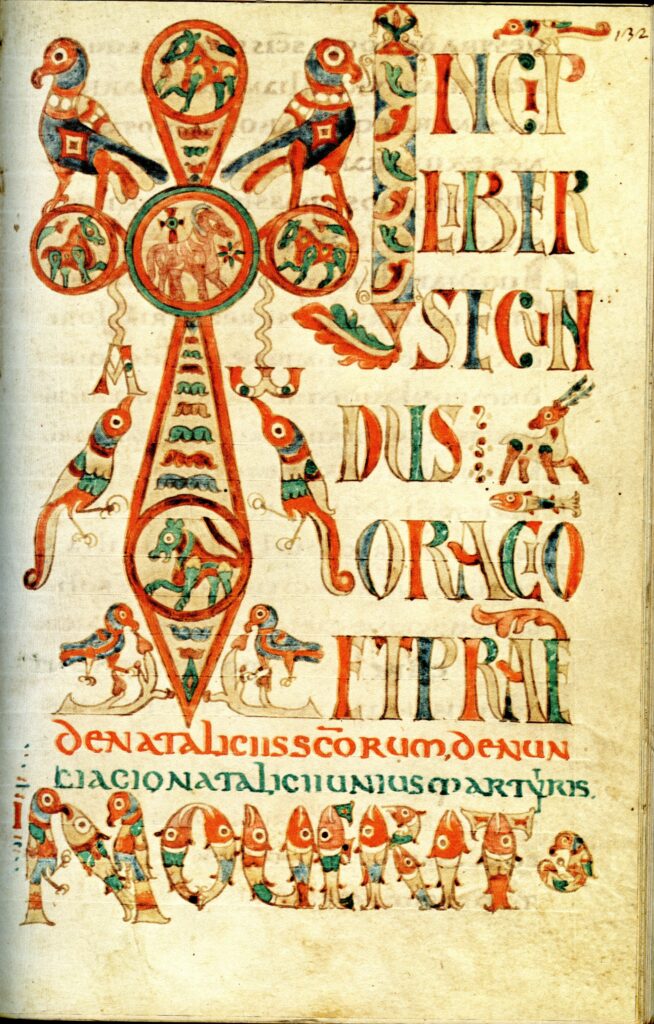 132
INCIP
LIBER
SECUN
A ω
DUS
ORACIO
ET PRAE
DE NATALICIIS SC̄ORUM, DENUN
TIACIO NATALICII UNIUS MARTYRIS.
NOUERIT